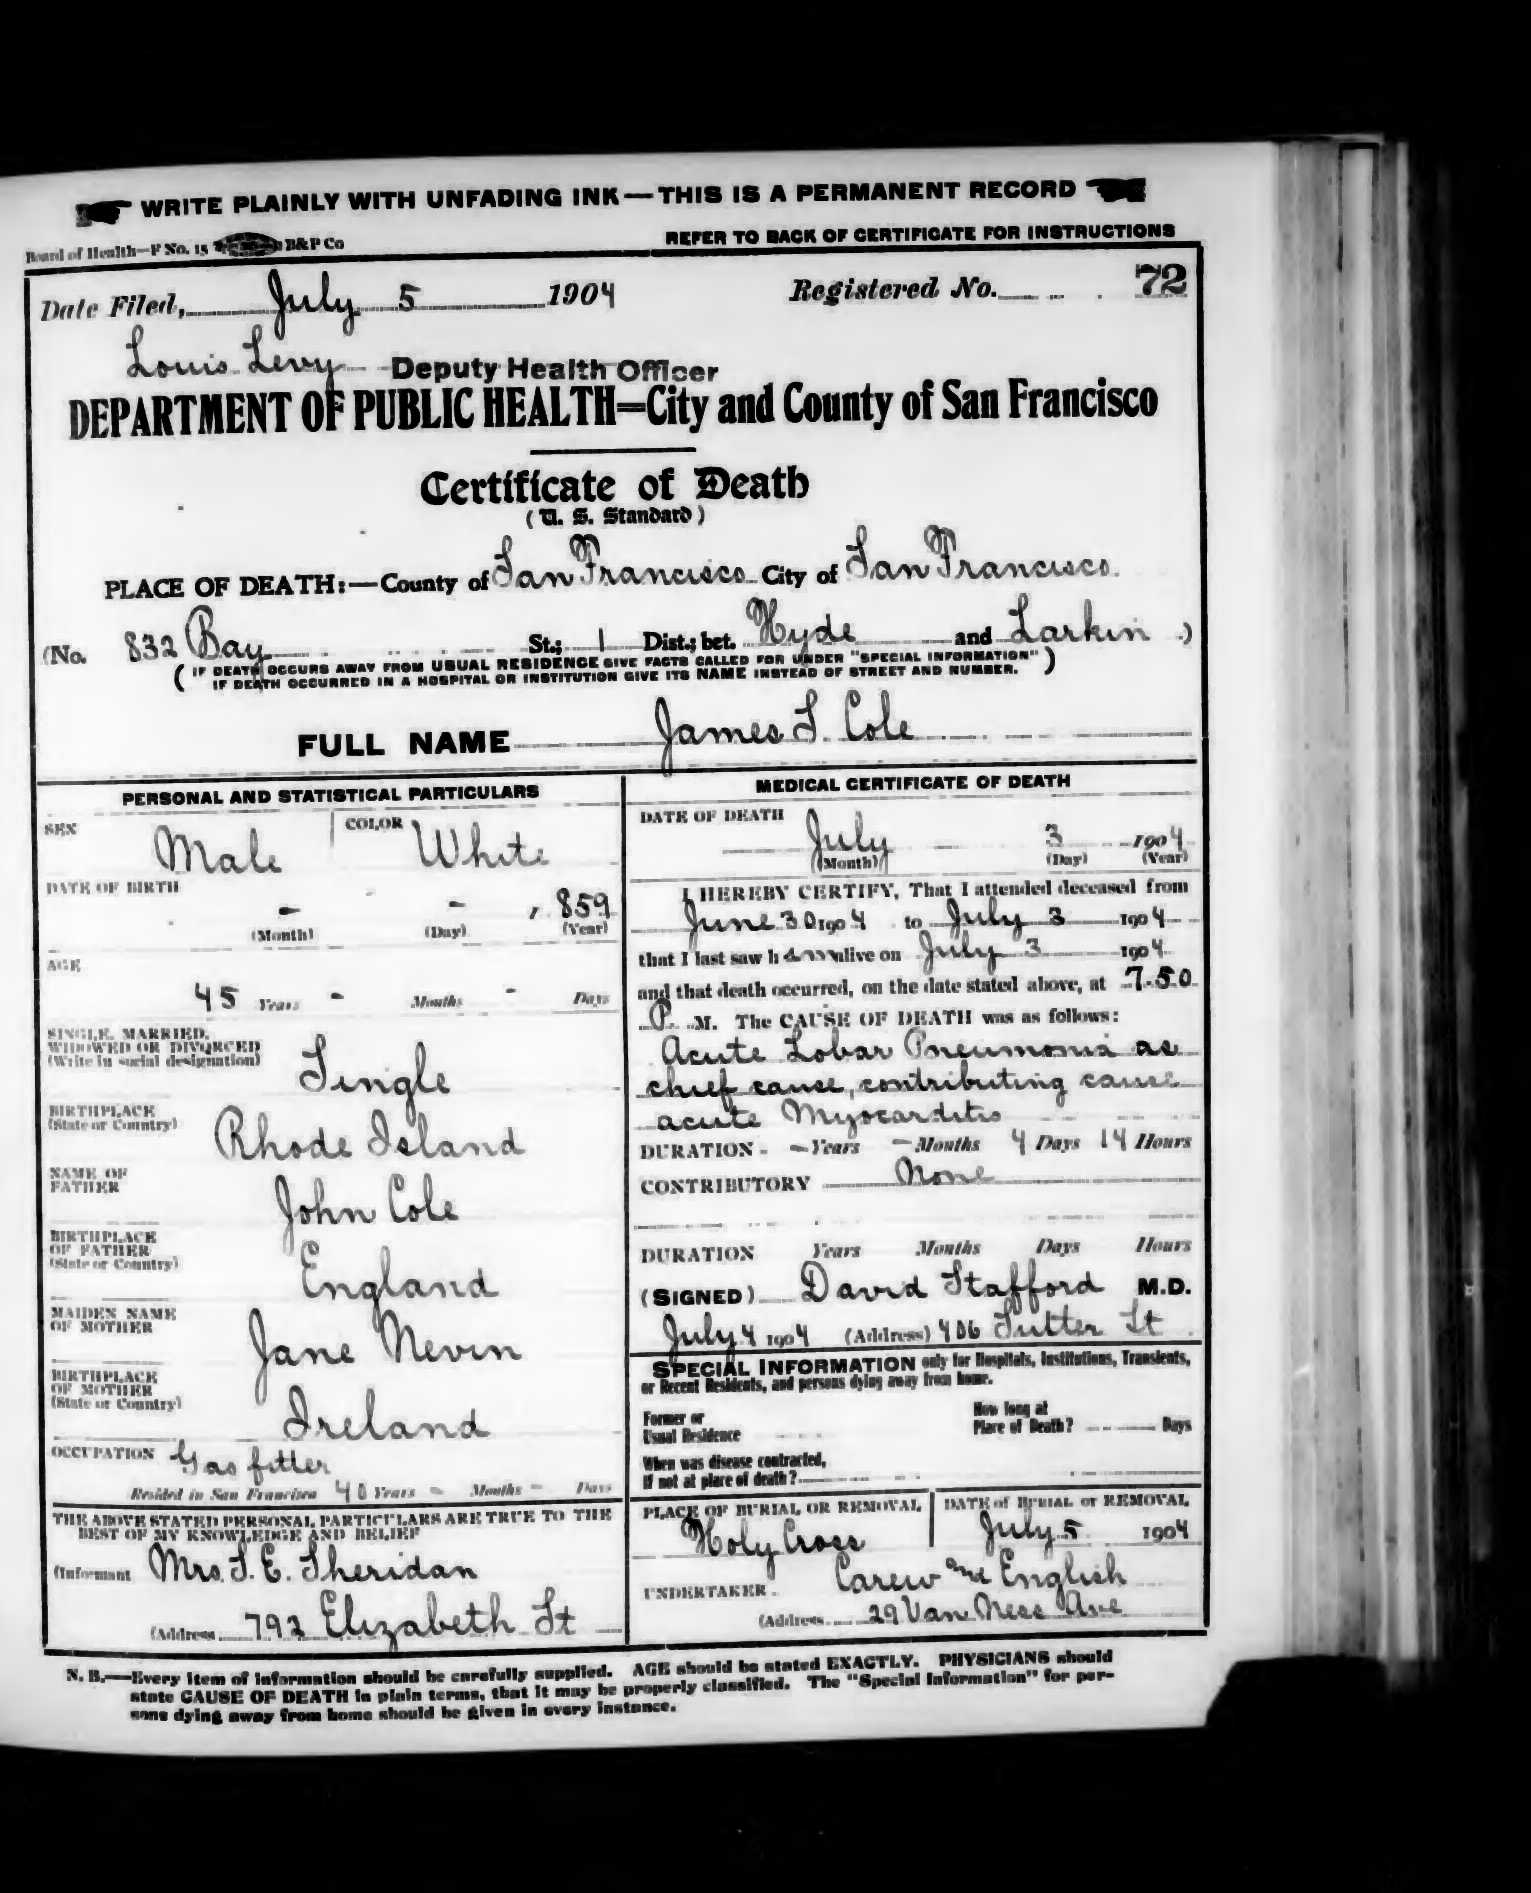 WRITE PLAINLY WITH UNFADING INK — THIS IS A PERMANENT RECORD
Board of Health—F No. 15 B&P Co
REFER TO BACK OF CERTIFICATE FOR INSTRUCTIONS
Date Filed, July 5 1904 Registered No. 72
Louis Levy Deputy Health Officer
DEPARTMENT OF PUBLIC HEALTH=City and County of San Francisco
Certificate of Death
(U. S. Standard)
PLACE OF DEATH:—County of San Francisco City of San Francisco
(No. 832 Bay St.; 1 Dist.; bet. Hyde and Larkin )
( IF DEATH OCCURS AWAY FROM USUAL RESIDENCE GIVE FACTS CALLED FOR UNDER "SPECIAL INFORMATION" )
IF DEATH OCCURRED IN A HOSPITAL OR INSTITUTION GIVE ITS NAME INSTEAD OF STREET AND NUMBER.
FULL NAME James S. Cole
PERSONAL AND STATISTICAL PARTICULARS
SEX Male COLOR White
DATE OF BIRTH
- - , 859
(Month) (Day) (Year)
AGE
45 Years - Months - Days
SINGLE, MARRIED,
WIDOWED OR DIVORCED
(Write in social designation)
Single
BIRTHPLACE
(State or Country)
Rhode Island
NAME OF
FATHER
John Cole
BIRTHPLACE
OF FATHER
(State or Country)
England
MAIDEN NAME
OF MOTHER
Jane Nevin
BIRTHPLACE
OF MOTHER
(State or Country)
Ireland
OCCUPATION Gas fitter
Resided in San Francisco 40 Years - Months - Days
THE ABOVE STATED PERSONAL PARTICULARS ARE TRUE TO THE
BEST OF MY KNOWLEDGE AND BELIEF
(Informant Mrs. S. E. Sheridan
(Address 792 Elizabeth St
MEDICAL CERTIFICATE OF DEATH
DATE OF DEATH
July 3 1904
(Month) (Day) (Year)
I HEREBY CERTIFY, That I attended deceased from
June 30 1904 to July 3 1904
that I last saw h im alive on July 3 1904
and that death occurred, on the date stated above, at 7.50
P. M. The CAUSE OF DEATH was as follows:
Acute Lobar Pneumonia as
chief cause, contributing cause
acute Myocarditis
DURATION - Years - Months 4 Days 14 Hours
CONTRIBUTORY None
DURATION Years Months Days Hours
(SIGNED) David Stafford M.D.
July 4 1904 (Address) 406 Sutter St
SPECIAL INFORMATION only for Hospitals, Institutions, Transients,
or Recent Residents, and persons dying away from home.
Former or
Usual Residence
How long at
Place of Death? Days
When was disease contracted,
If not at place of death?
PLACE OF BURIAL OR REMOVAL
Holy Cross
DATE of BURIAL or REMOVAL
July 5 1904
UNDERTAKER Carew and English
(Address 29 Van Ness Ave
N. B.—Every item of information should be carefully supplied. AGE should be stated EXACTLY. PHYSICIANS should
state CAUSE OF DEATH in plain terms, that it may be properly classified. The "Special Information" for per-
sons dying away from home should be given in every instance.